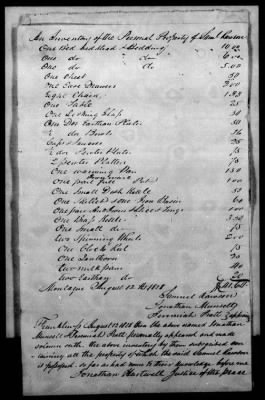 An Inventory of the Personal Property of Saml Lawson
One Bed Bedstead & Bedding 10.00
One do do 6.00
One do do 5.00
One Chest 50
One Case Drawers 2.00
Eight Chairs
One Table 25
One Looking Glass 50
One Doz Earthan Plates 50
½ do Bowls 36
Cups & Saucers 25
½ doz Pewter Plates 75
2 pewter Platters 75
One warming Pan 1.50
One Small Dish Kettle 50
One Skillet & one Iron Bason 60
One pair Andirons Shovel & Tongs 2.00
One Brass Kettle 3.50
One Small do 75
two Spinning Wheels 2.00
One Clock Reel 50
One Lanthorn 20
two milk pans 40
two Earthen do 20
Montague August 12th 1818
Samuel Lawson
Jonathan Munsell
Jeremiah Pratt
Franklin ss August 12 1818 then the above named Jonathan
Munsell & Jeremiah Pratt personally appeared and made
solemn oath the above inventory by them subscribed con-
taining all the property of which the said Samuel Lawson
is possessed so far as had come to their knowledge before me
Jonathan Hartwell Justice of the peace